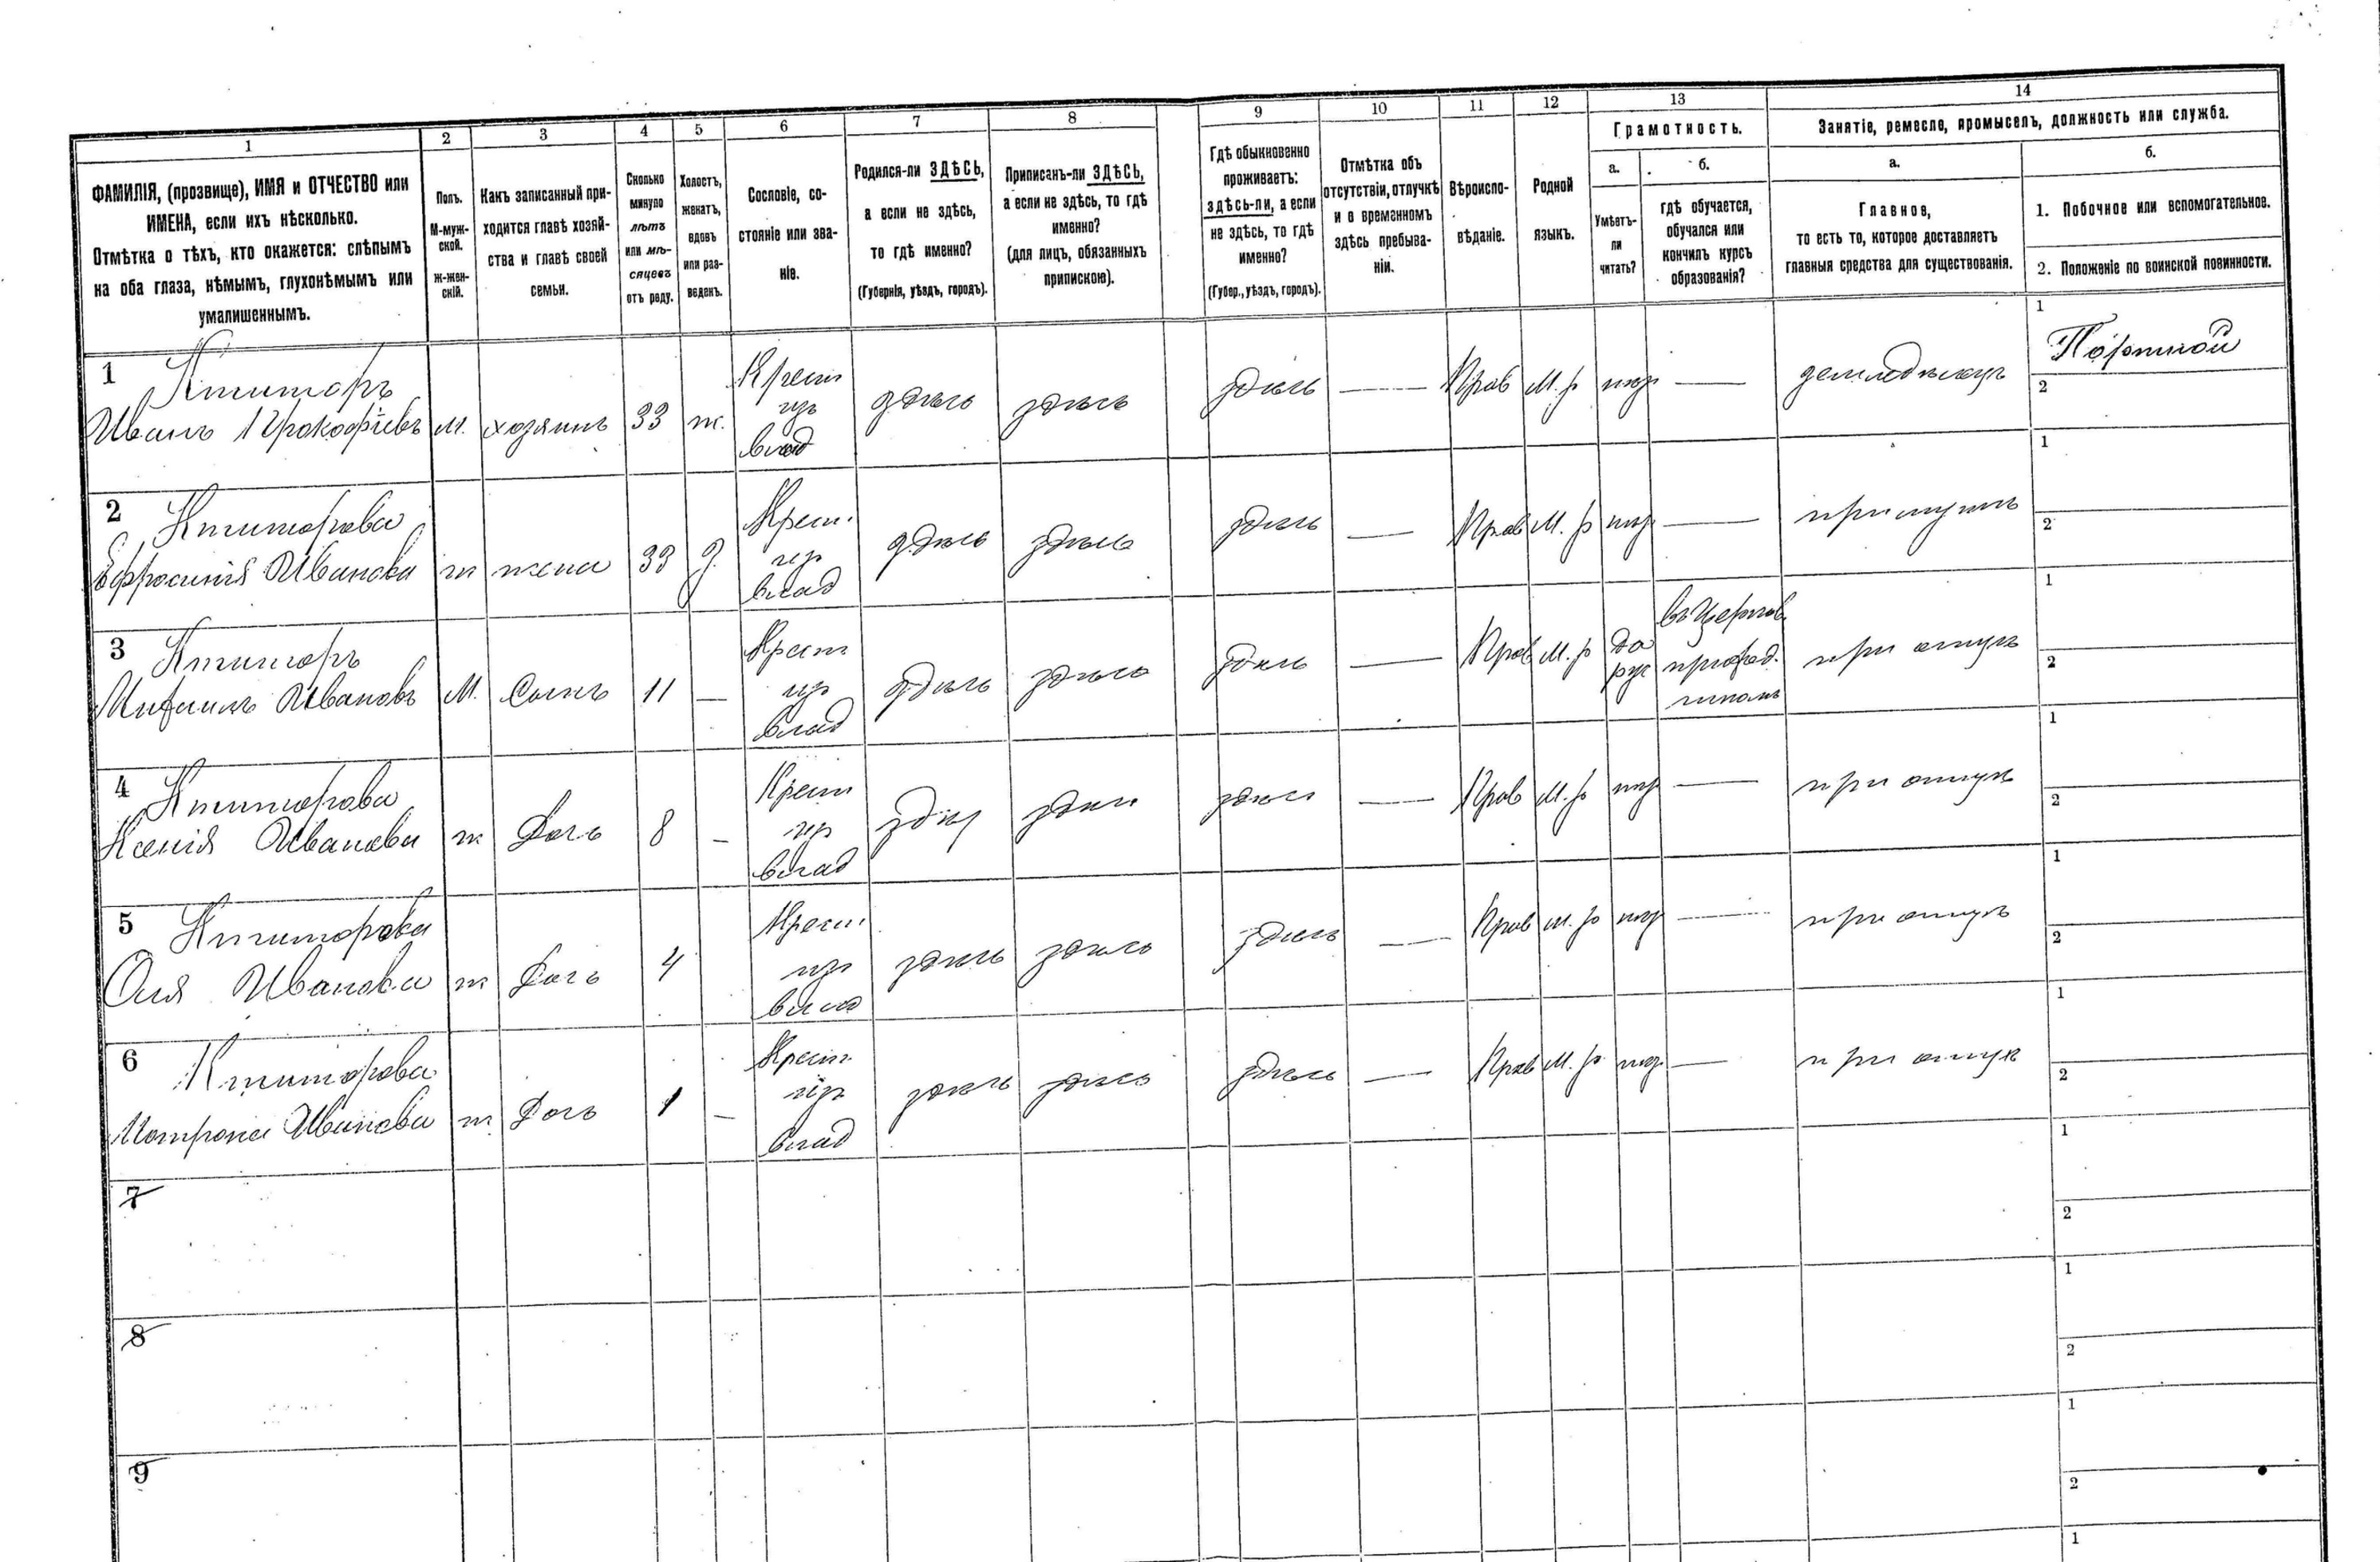 1
2
3
4
5
6
7
8
9
10
11
12
13
14
ФАМИЛІЯ, (прозвище), ИМЯ и ОТЧЕСТВО или
ИМЕНА, если ихъ нѣсколько.
Отмѣтка о тѣхъ, кто окажется: слѣпымъ
на оба глаза, нѣмымъ, глухонѣмымъ или
умалишеннымъ.
Полъ.
М-муж-
ской.
ж-жен-
скій.
Какъ записанный при-
ходится главѣ хозяй-
ства и главѣ своей
семьи.
Сколько
минуло
лѣтъ
или мѣ-
сяцевъ
отъ роду.
Холостъ,
женатъ,
вдовъ
или раз-
веденъ.
Сословіе, со-
стояніе или зва-
ніе.
Родился-ли ЗДѢСЬ,
а если не здѣсь,
то гдѣ именно?
(Губернія, уѣздъ, городъ).
Приписанъ-ли ЗДѢСЬ,
а если не здѣсь, то гдѣ
именно?
(для лицъ, обязанныхъ
припискою).
Гдѣ обыкновенно
проживаетъ:
здѣсь-ли, а если
не здѣсь, то гдѣ
именно?
(Губер., уѣздъ, городъ).
Отмѣтка объ
отсутствіи, отлучкѣ
и о временномъ
здѣсь пребыва-
ніи.
Вѣроиспо-
вѣданіе.
Родной
языкъ.
Грамотность.
а.
Умѣетъ-
ли
читать?
б.
гдѣ обучается,
обучался или
кончилъ курсъ
образованія?
Занятіе, ремесло, промыселъ, должность или служба.
а.
Главное,
то есть то, которое доставляетъ
главныя средства для существованія.
б.
1. Побочное или вспомогательное.
2. Положеніе по воинской повинности.
1 Ктиторъ
Иванъ Прокофіевъ
м. хозяинъ 33 ж.
Крест
из
влад
здѣсь здѣсь здѣсь — Прав М.р нѣт — земледѣлецъ
1 Портной
2
2 Ктиторова
Ефросинія Иванова
ж жена 33 з.
Крест.
из
влад
здѣсь здѣсь здѣсь — Прав М.р нѣт — при мужѣ
1
2
3 Ктиторъ
Михаилъ Ивановъ
М. Сынъ 11 —
Крест
из
влад
здѣсь здѣсь здѣсь — Прав М.р
да
рус
въ Церков.
приход.
школѣ
при отцѣ
1
2
4 Ктиторова
Ксенія Иванова
ж Дочь 8 —
Крест
из
влад
здѣсь здѣсь здѣсь — Прав М.р нѣт — при отцѣ
1
2
5 Ктиторова
Оля Иванова
ж Дочь 4
Крест.
из
влад
здѣсь здѣсь здѣсь — Прав М.р нѣт — при отцѣ
1
2
6 Ктиторова
Матрона Иванова
ж Дочь 1 —
Крест
из
влад
здѣсь здѣсь здѣсь — Прав М.р нѣт — при отцѣ
1
2
7
1
2
8
1
2
9
1
2
1